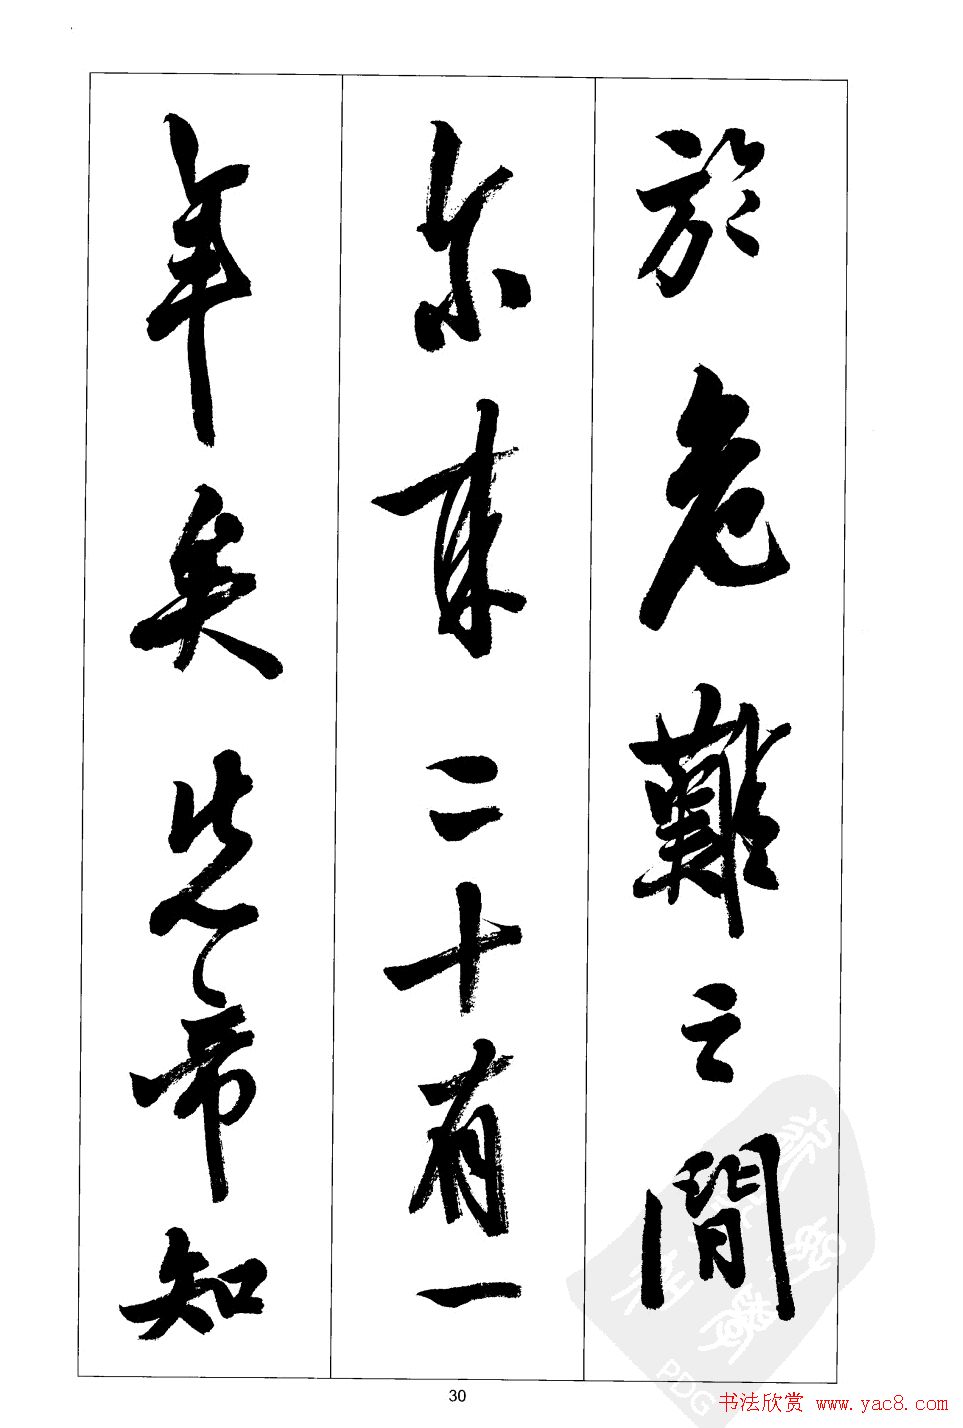 於危難之間
尔来二十有一
年矣先帝知
30
PDG
书法欣赏 www.yac8.com